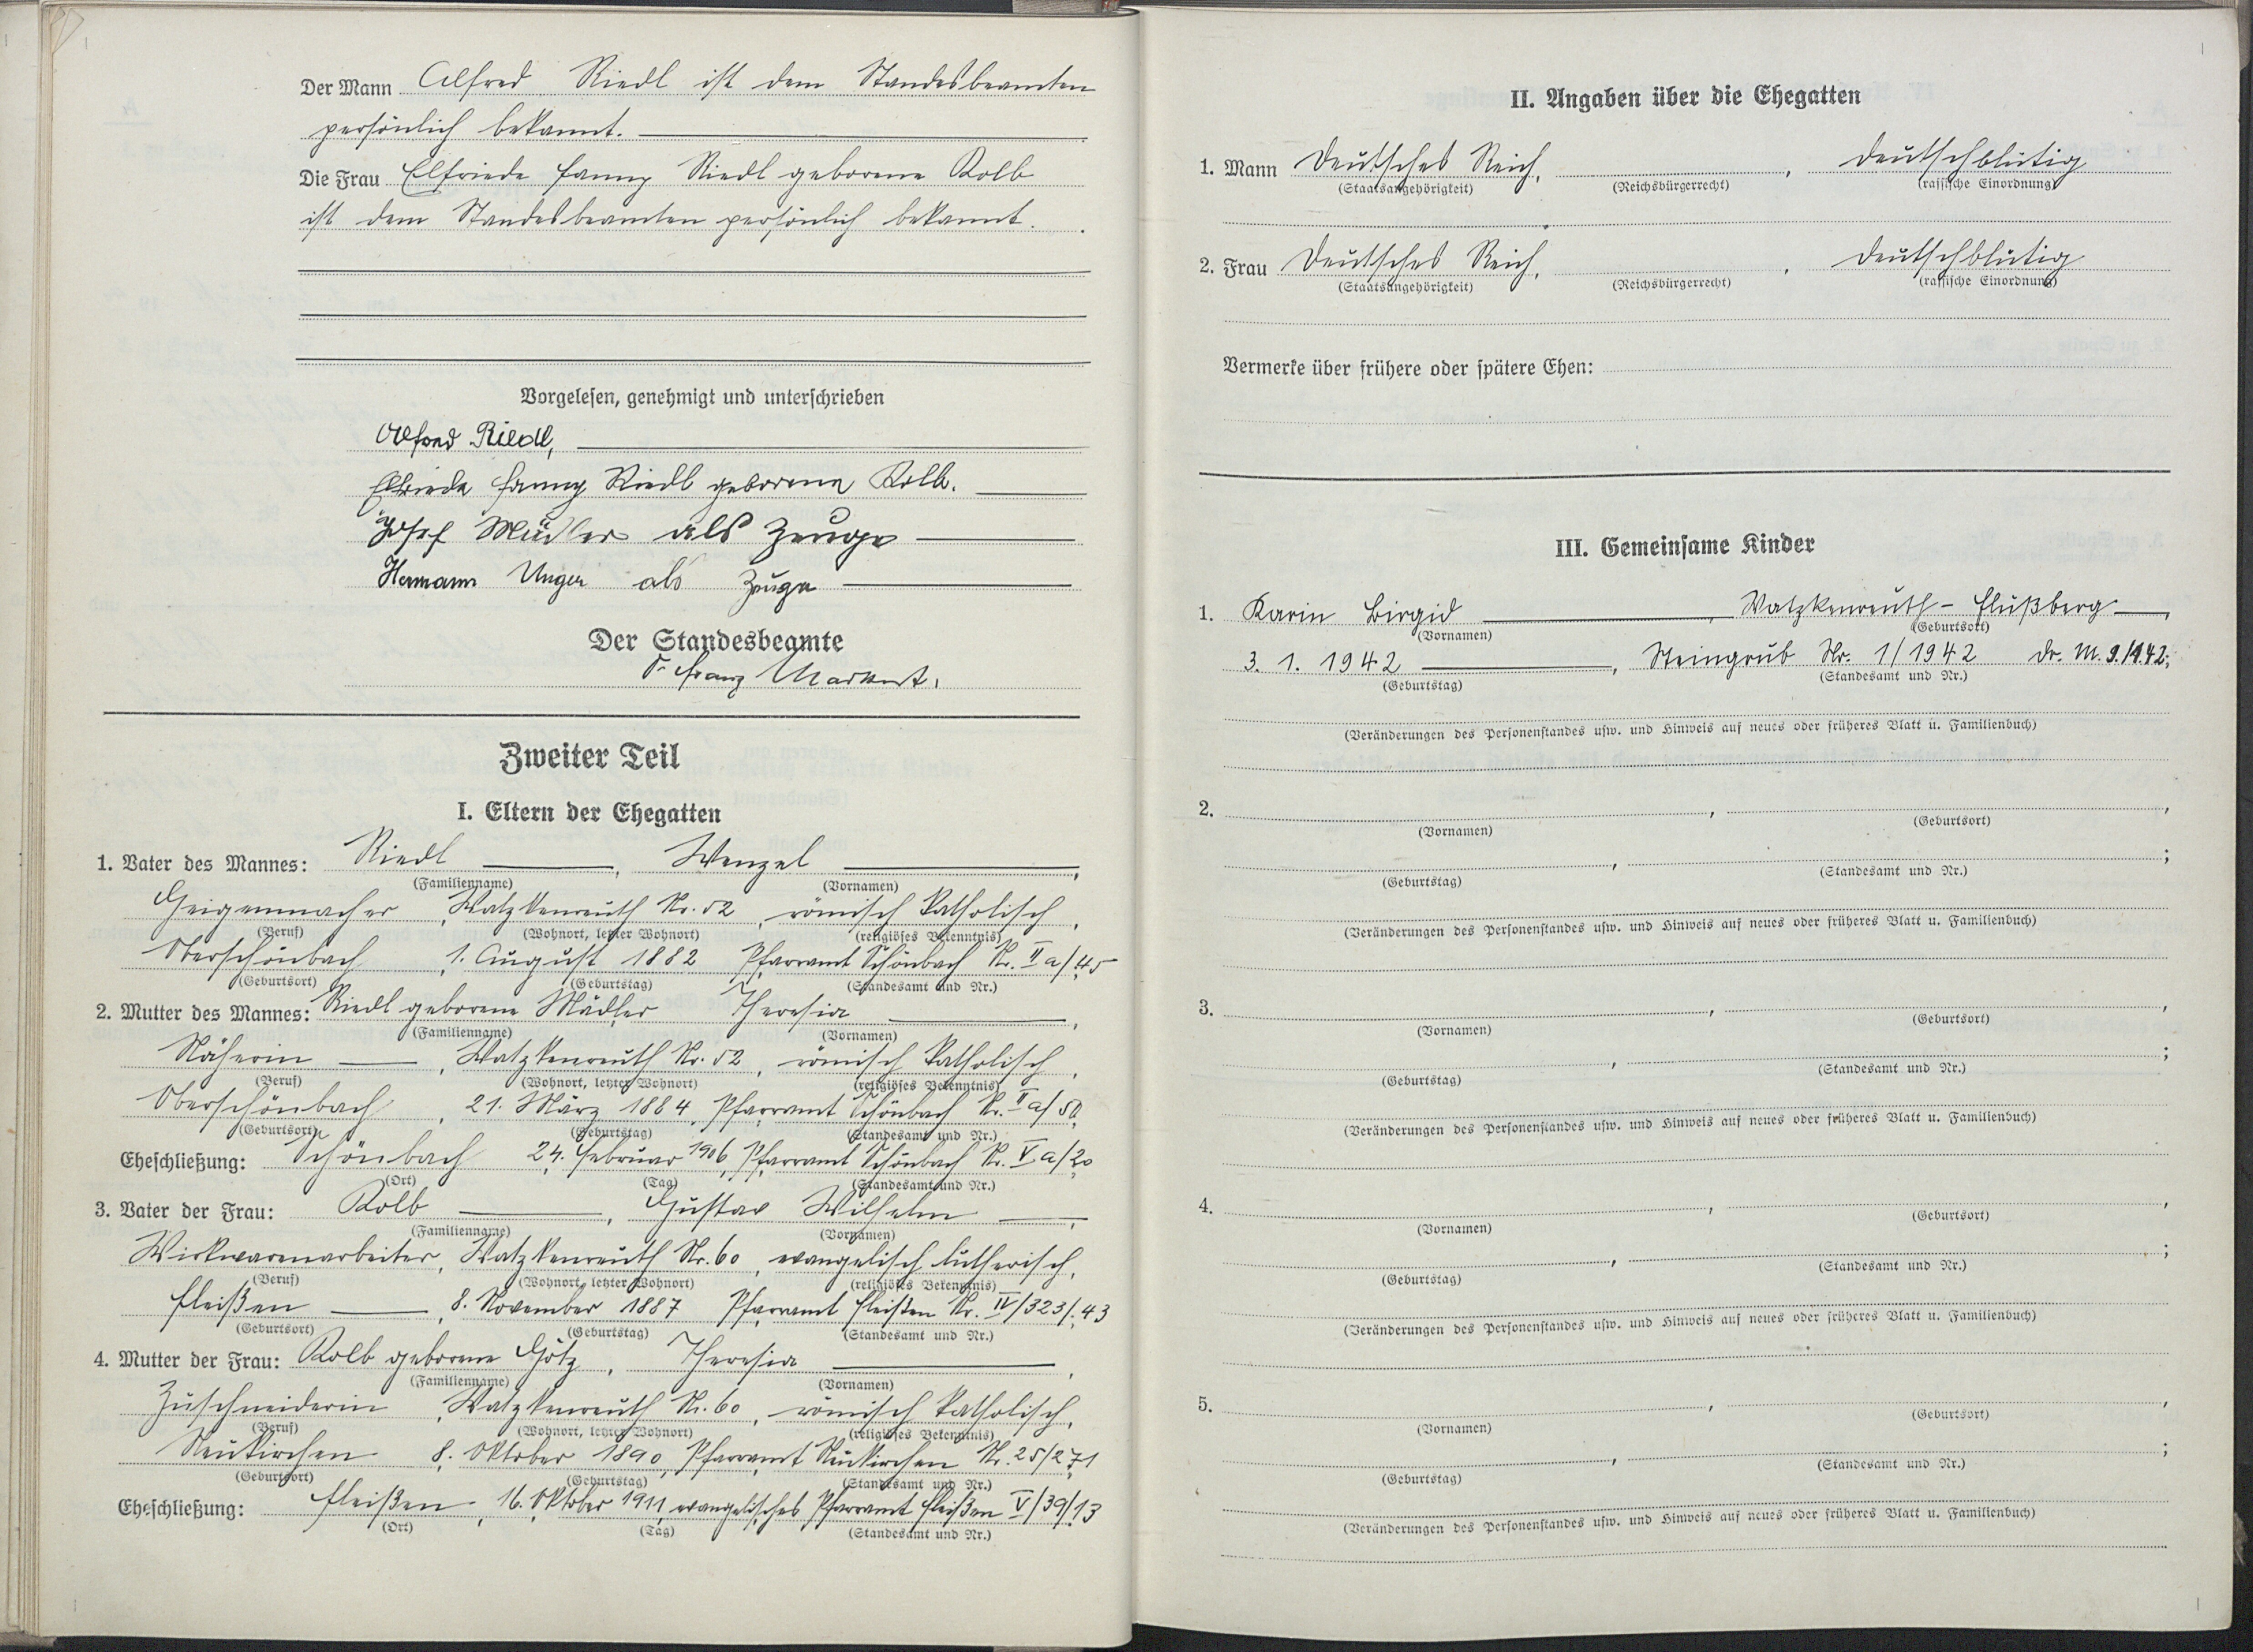 Der Mann Alfred Riedl ist dem Standesbeamten
persönlich bekannt.
Die Frau Elfriede Fanny Riedl geborene Kolb
ist dem Standesbeamten persönlich bekannt.
Vorgelesen, genehmigt und unterschrieben
Alfred Riedl,
Elfriede Fanny Riedl geborene Kolb.
Josef Müller als Zeuge
Hermann Unger als Zeuge
Der Standesbeamte
Franz Markert.
Zweiter Teil
I. Eltern der Ehegatten
1. Vater des Mannes: Riedl, Wenzel,
(Familienname) (Vornamen)
Geigenmacher, Watzkenreuth Nr. 52, römisch katholisch,
(Beruf) (Wohnort, letzter Wohnort) (religiöses Bekenntnis)
Oberschönbach, 1. August 1882 Pfarramt Schönbach Nr. II a/45
(Geburtsort) (Geburtstag) (Standesamt und Nr.)
2. Mutter des Mannes: Riedl geborene Mädler Theresia,
(Familienname) (Vornamen)
Näherin, Watzkenreuth Nr. 52, römisch katholisch,
(Beruf) (Wohnort, letzter Wohnort) (religiöses Bekenntnis)
Oberschönbach, 21. März 1884, Pfarramt Schönbach Nr. II a/50,
(Geburtsort) (Geburtstag) (Standesamt und Nr.)
Eheschließung: Schönbach 24. Februar 1906, Pfarramt Schönbach Nr. V a/20
(Ort) (Tag) (Standesamt und Nr.)
3. Vater der Frau: Kolb, Gustav Wilhelm,
(Familienname) (Vornamen)
Wirkwarenarbeiter, Watzkenreuth Nr. 60, evangelisch lutherisch,
(Beruf) (Wohnort, letzter Wohnort) (religiöses Bekenntnis)
Fleißen, 8. November 1887 Pfarramt Fleißen Nr. IV/323/43
(Geburtsort) (Geburtstag) (Standesamt und Nr.)
4. Mutter der Frau: Kolb geborene Götz, Theresia,
(Familienname) (Vornamen)
Zuschneiderin, Watzkenreuth Nr. 60, römisch katholisch,
(Beruf) (Wohnort, letzter Wohnort) (religiöses Bekenntnis)
Neukirchen 8. Oktober 1890, Pfarramt Neukirchen Nr. 25/271
(Geburtsort) (Geburtstag) (Standesamt und Nr.)
Eheschließung: Fleißen, 16. Oktober 1911, evangelisches Pfarramt Fleißen V/39/13
(Ort) (Tag) (Standesamt und Nr.)
II. Angaben über die Ehegatten
1. Mann Deutsches Reich, , deutschblütig
(Staatsangehörigkeit) (Reichsbürgerrecht) (rassische Einordnung)
2. Frau Deutsches Reich, , deutschblütig
(Staatsangehörigkeit) (Reichsbürgerrecht) (rassische Einordnung)
Vermerke über frühere oder spätere Ehen:
III. Gemeinsame Kinder
1. Karin Birgid, Watzkenreuth-Flußberg,
(Vornamen) (Geburtsort)
3. 1. 1942, Steingrub Nr. 1/1942 Dr. M. 9./1.42;
(Geburtstag) (Standesamt und Nr.)
(Veränderungen des Personenstandes usw. und Hinweis auf neues oder früheres Blatt u. Familienbuch)
2. , ,
(Vornamen) (Geburtsort)
, ;
(Geburtstag) (Standesamt und Nr.)
(Veränderungen des Personenstandes usw. und Hinweis auf neues oder früheres Blatt u. Familienbuch)
3. , ,
(Vornamen) (Geburtsort)
, ;
(Geburtstag) (Standesamt und Nr.)
(Veränderungen des Personenstandes usw. und Hinweis auf neues oder früheres Blatt u. Familienbuch)
4. , ,
(Vornamen) (Geburtsort)
, ;
(Geburtstag) (Standesamt und Nr.)
(Veränderungen des Personenstandes usw. und Hinweis auf neues oder früheres Blatt u. Familienbuch)
5. , ,
(Vornamen) (Geburtsort)
, ;
(Geburtstag) (Standesamt und Nr.)
(Veränderungen des Personenstandes usw. und Hinweis auf neues oder früheres Blatt u. Familienbuch)